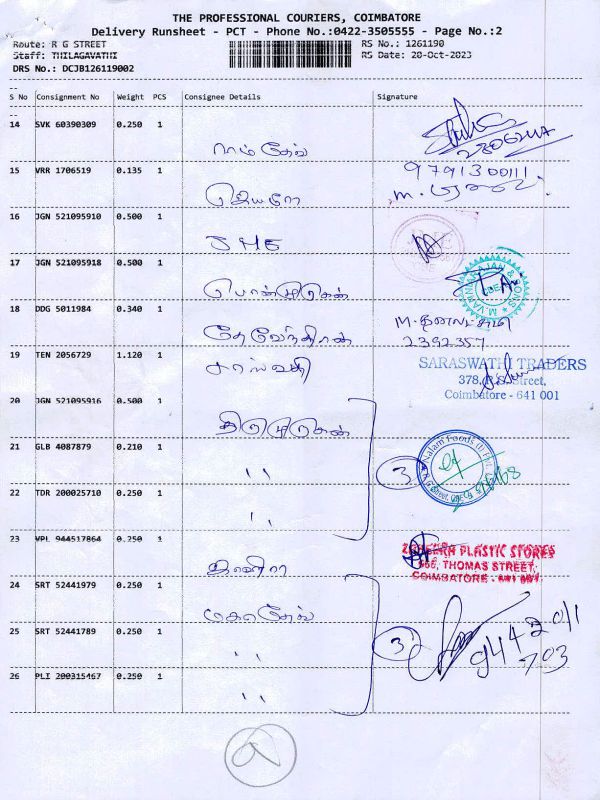 THE PROFESSIONAL COURIERS, COIMBATORE
Delivery Runsheet - PCT - Phone No.:0422-3505555 - Page No.:2
Route: R G STREET
RS No.: 1261190
Staff: THILAGAVATHI
RS Date: 20-Oct-2023
DRS No.: DCJB126119002
S No Consignment No Weight PCS Consignee Details Signature
14 SVK 60390309 0.250 1 ராம்தேவ்
15 VRR 1706519 0.135 1 9791300111
M.
16 JGN 521095910 0.500 1 SHE
17 JGN 521095918 0.500 1 பொன்முருகன்
18 DDG 5011984 0.340 1 தேவேந்திரன் M. தனலட்சுமி
2392357
19 TEN 2056729 1.120 1 சரஸ்வதி SARASWATHI TRADERS
378, Street,
Coimbatore - 641 001
20 JGN 521095916 0.500 1 திருமுருகன்
21 GLB 4087879 0.210 1 " 3 Nalam Foods (I) Pvt.
22 TDR 200025710 0.250 1 "
23 VPL 944517864 0.250 1 PLASTIC STORES
THOMAS STREET,
COIMBATORE - 641 001
24 SRT 52441979 0.250 1 மகாதேவ்
25 SRT 52441789 0.250 1 " 3 9442011
703
26 PLI 200315467 0.250 1 "